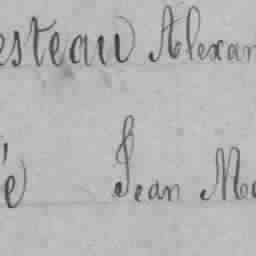 esteau Alexan
é Jean Ma